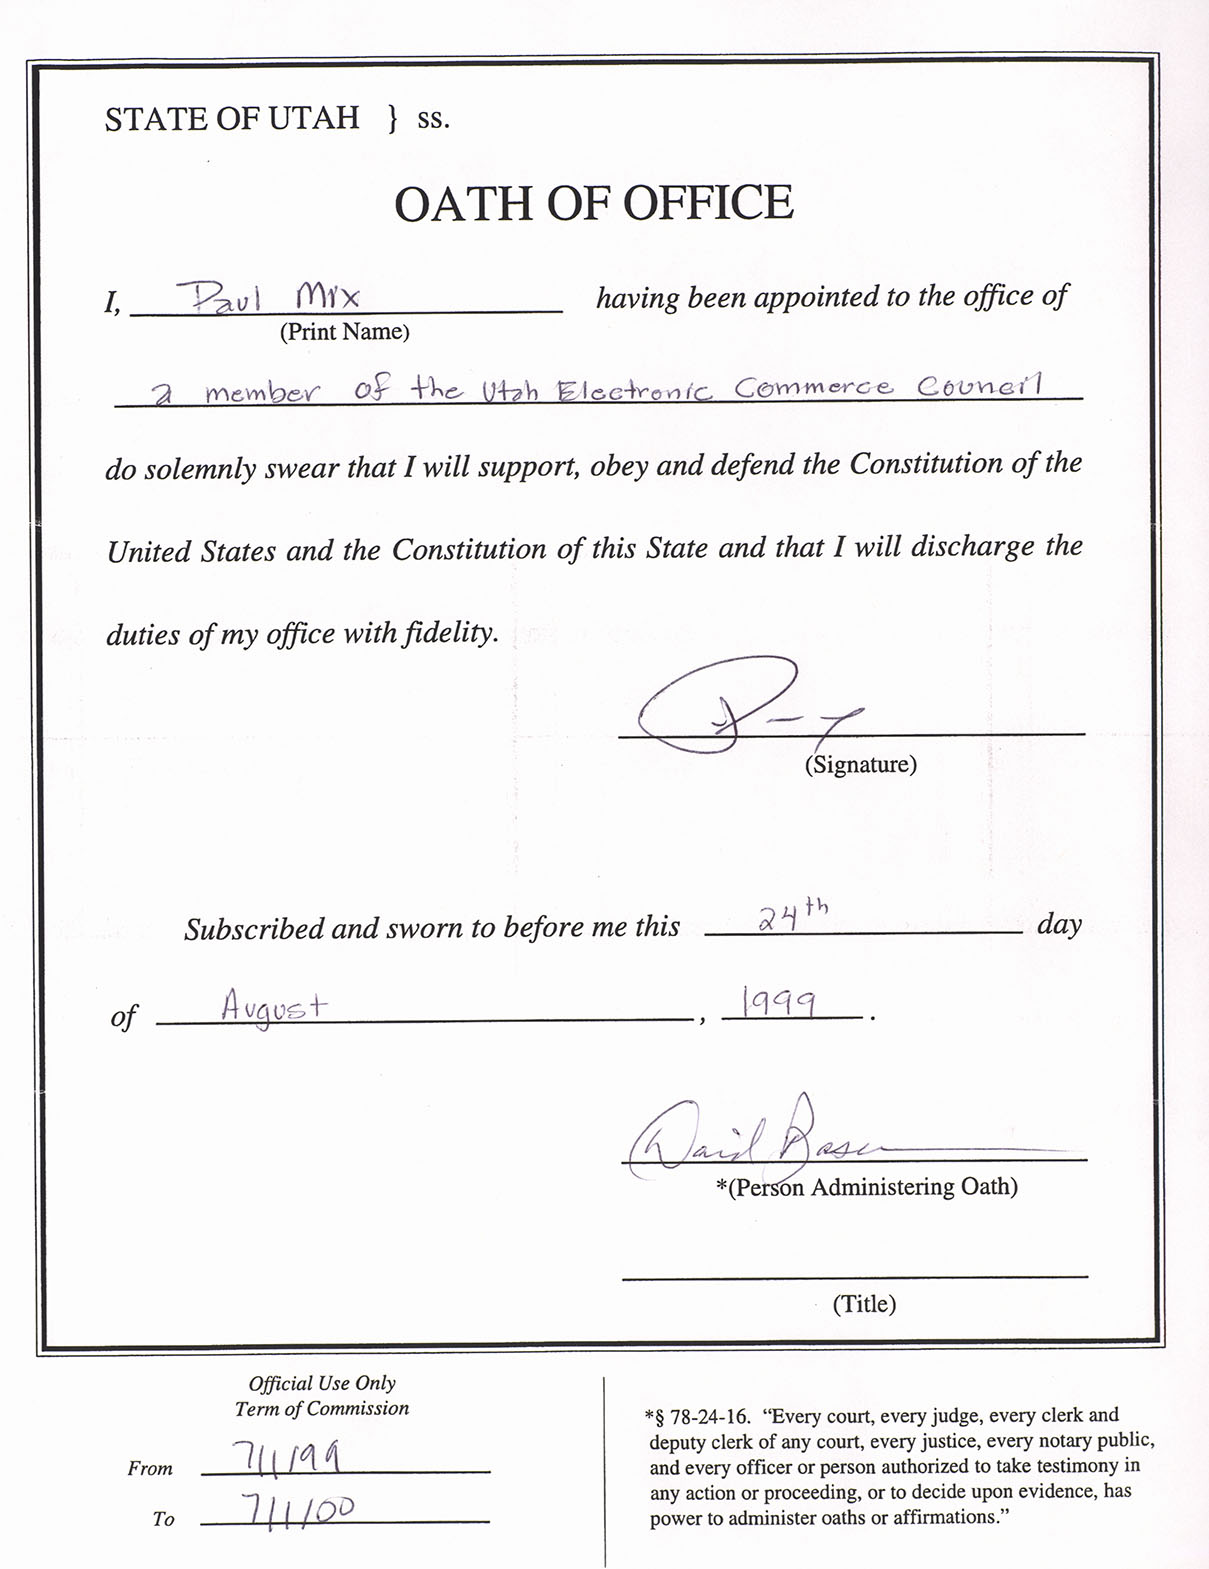 STATE OF UTAH } ss.
OATH OF OFFICE
I, Paul Mix having been appointed to the office of
(Print Name)
a member of the Utah Electronic Commerce Council
do solemnly swear that I will support, obey and defend the Constitution of the
United States and the Constitution of this State and that I will discharge the
duties of my office with fidelity.
(Signature)
Subscribed and sworn to before me this 24th day
of August, 1999.
David
*(Person Administering Oath)
(Title)
Official Use Only
Term of Commission
From 7/1/99
To 7/1/00
*§ 78-24-16. “Every court, every judge, every clerk and
deputy clerk of any court, every justice, every notary public,
and every officer or person authorized to take testimony in
any action or proceeding, or to decide upon evidence, has
power to administer oaths or affirmations.”